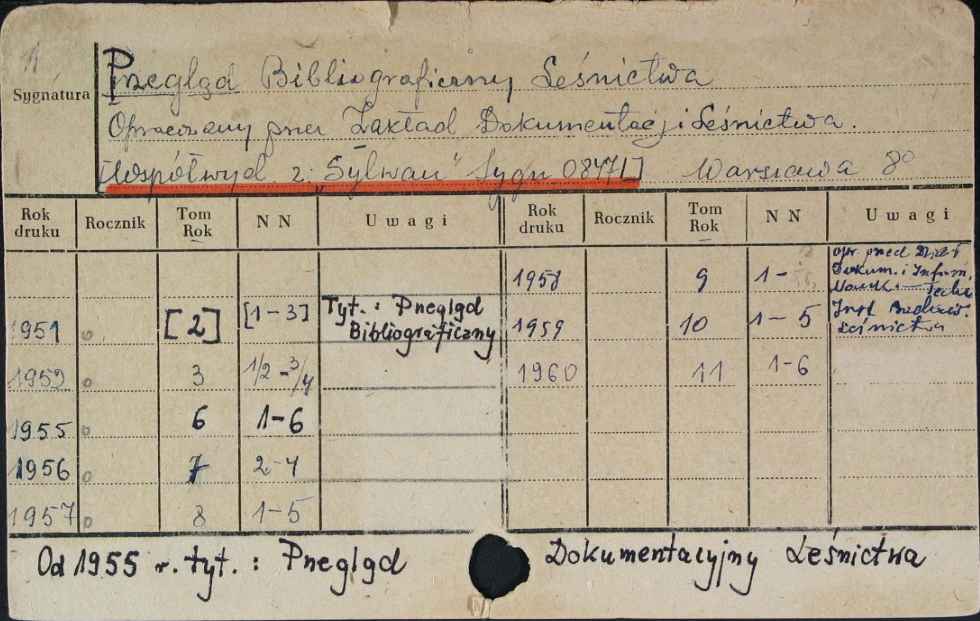 Sygnatura
Przegląd Bibliograficzny Leśnictwa
Opracowany przez Zakład Dokumentacji Leśnictwa.
[Współwyd z "Sylwan" Sygn 08471] Warszawa 8°
Rok druku Rocznik Tom Rok N N Uwagi Rok druku Rocznik Tom Rok N N Uwagi
1958 9 1- opr. przed Dział
Dokum. i Inform.
1951 [2] [1-3] Tyt.: Przegląd Bibliograficzny 1959 10 1-5 Inst. Badawcz. Leśnictwa
1952 3 1/2-3/4 1960 11 1-6
1955 6 1-6
1956 7 2-4
1957 8 1-5
Od 1955 r. tyt.: Przegląd Dokumentacyjny Leśnictwa